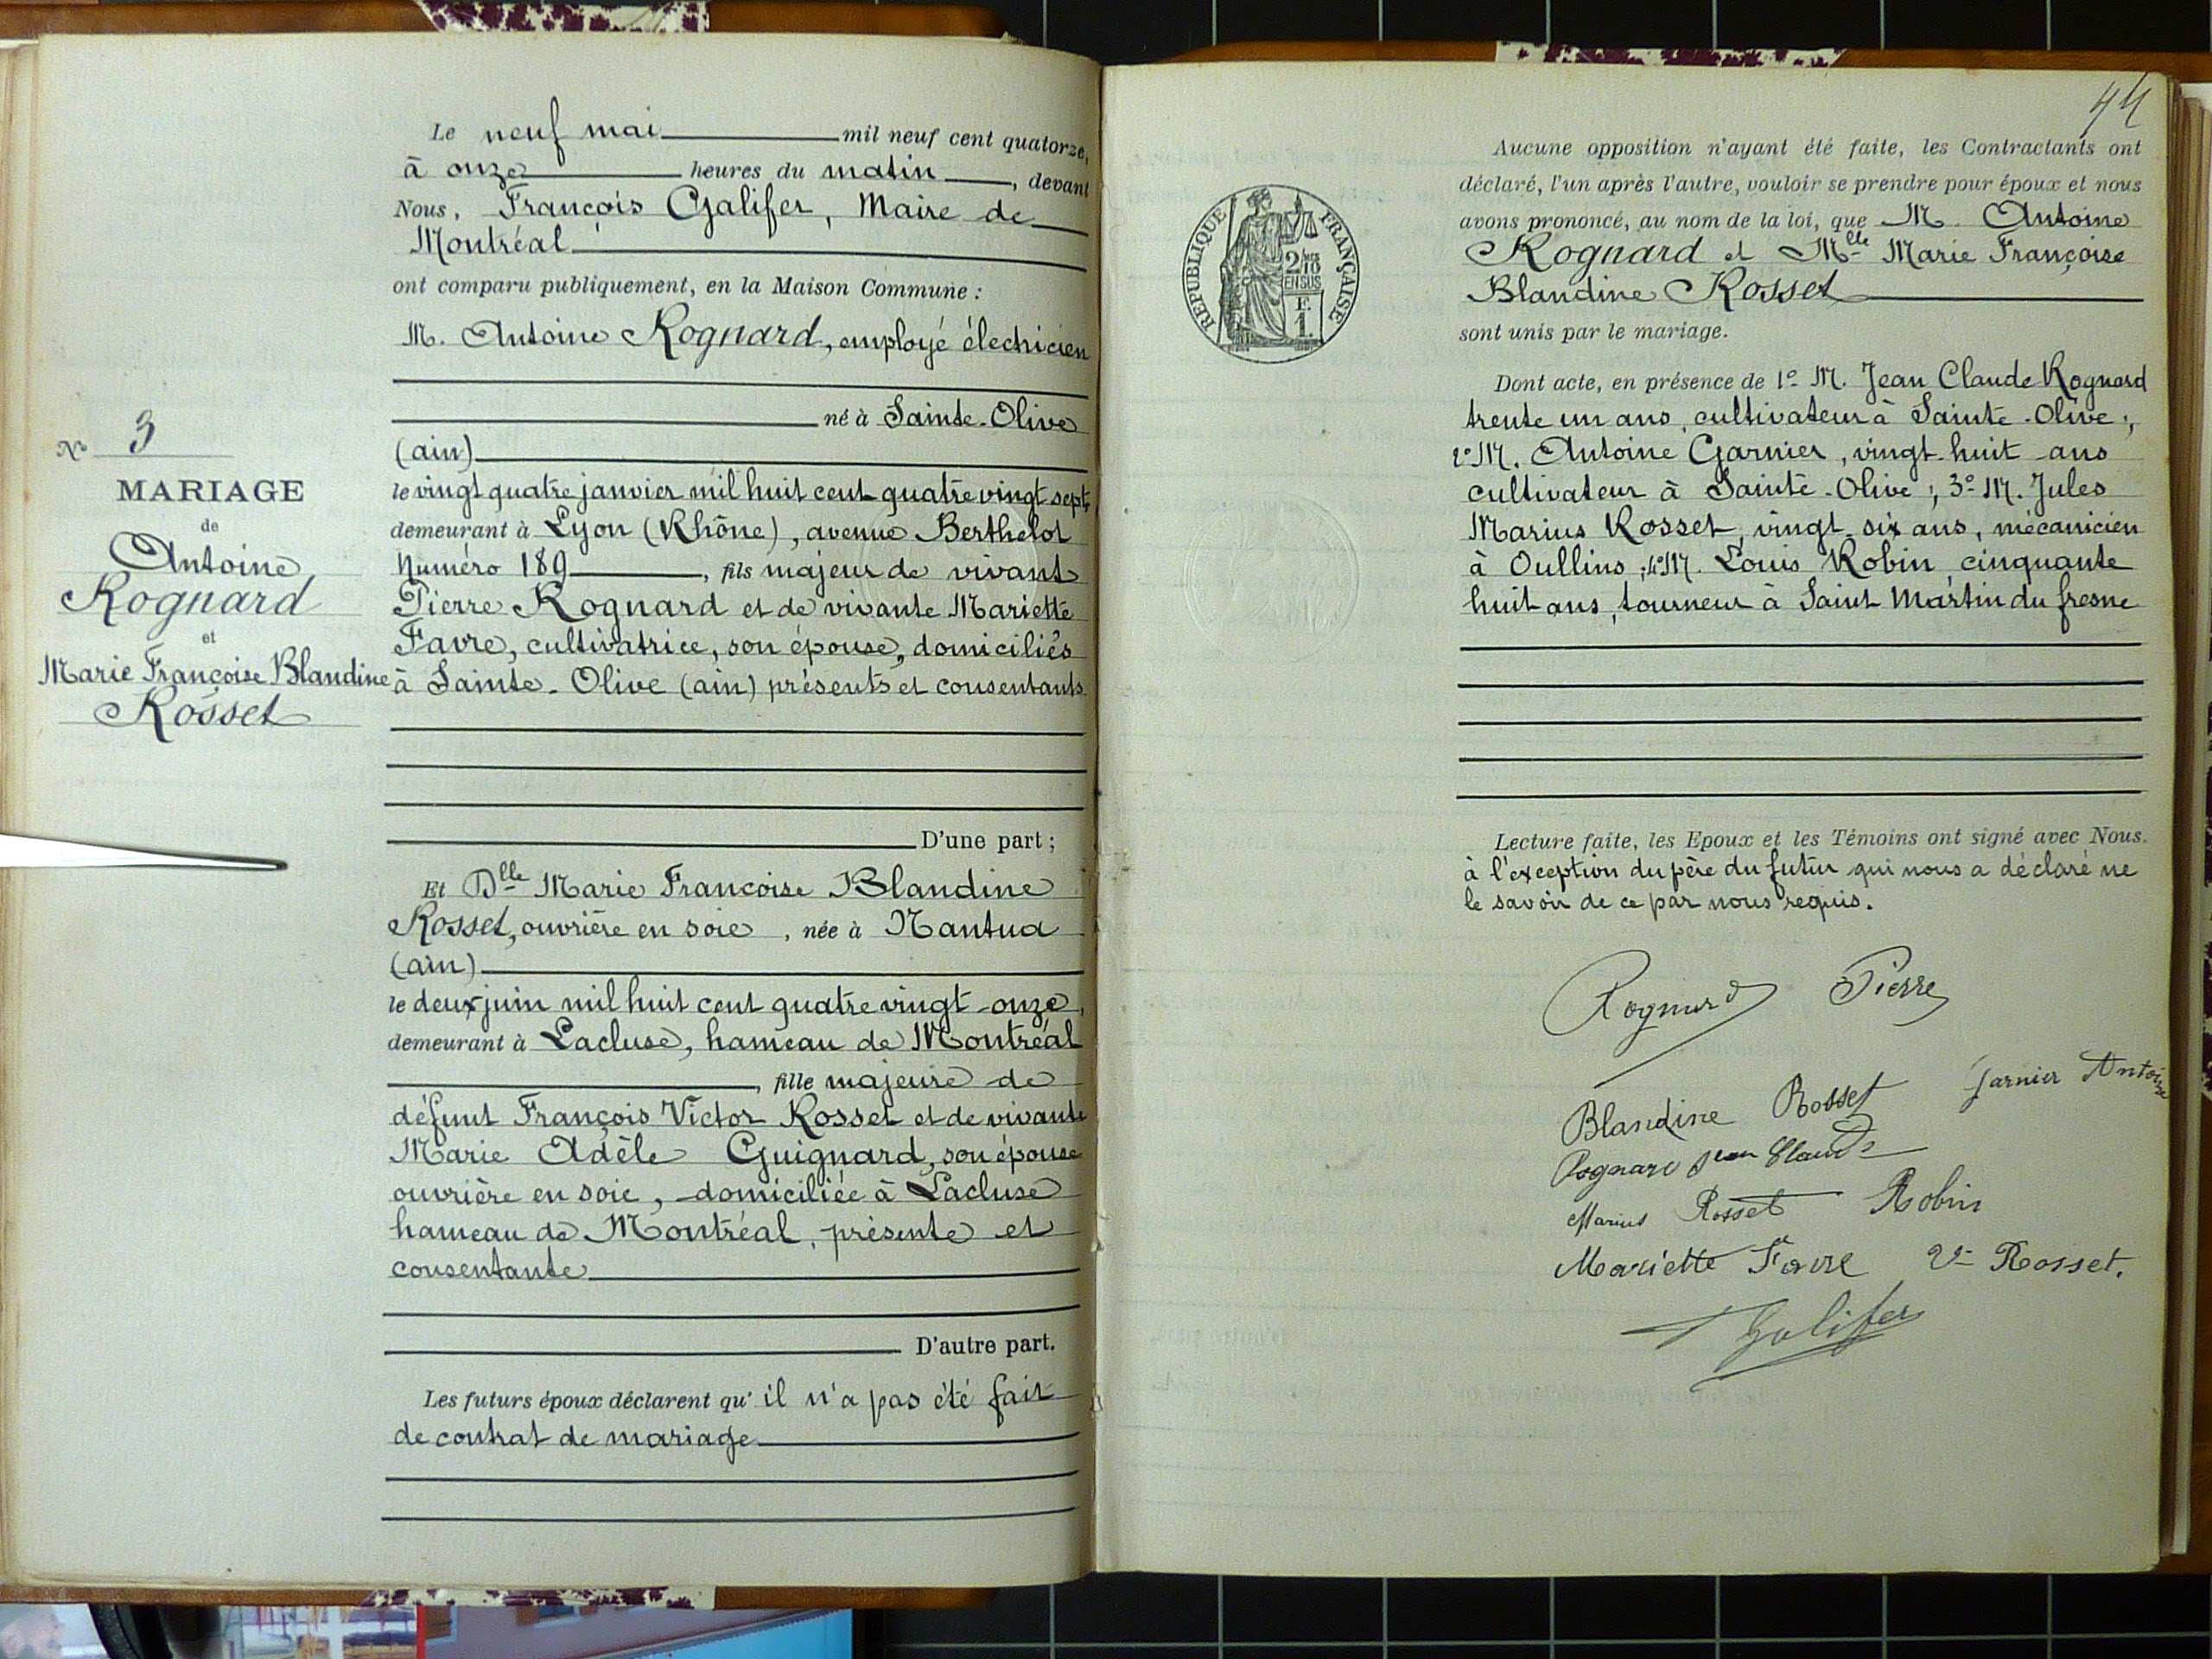 Le neuf mai mil neuf cent quatorze,
à onze heures du matin, devant
Nous, François Galifer, Maire de
Montréal
ont comparu publiquement, en la Maison Commune :
M. Antoine Rognard, employé électricien
né à Sainte-Olive
(ain)
le vingt quatre janvier mil huit cent quatre vingt sept,
demeurant à Lyon (Rhône), avenue Berthelot
Numéro 189, fils majeur de vivant
Pierre Rognard et de vivante Mariette
Favre, cultivatrice, son épouse, domiciliés
à Sainte-Olive (ain) présents et consentants
D'une part ;
Et Dlle Marie Françoise Blandine
Rosset, ouvrière en soie, née à Nantua
(ain)
le deux juin mil huit cent quatre vingt-onze,
demeurant à Lacluse, hameau de Montréal
, fille majeure de
défunt François Victor Rosset et de vivante
Marie Adèle Guignard, son épouse
ouvrière en soie, domiciliée à Lacluse
hameau de Montréal, présente et
consentante
D'autre part.
Les futurs époux déclarent qu'il n'a pas été fait
de contrat de mariage
No 3
MARIAGE
de
Antoine
Rognard
et
Marie Françoise Blandine
Rosset
44
RÉPUBLIQUE FRANÇAISE
2/10
EN SUS
F.
1.
Aucune opposition n'ayant été faite, les Contractants ont
déclaré, l'un après l'autre, vouloir se prendre pour époux et nous
avons prononcé, au nom de la loi, que M. Antoine
Rognard et Mlle Marie Françoise
Blandine Rosset
sont unis par le mariage.
Dont acte, en présence de 1º M. Jean Claude Rognard
trente un ans, cultivateur à Sainte-Olive ;
2º M. Antoine Garnier, vingt-huit ans
cultivateur à Sainte-Olive ; 3º M. Jules
Marius Rosset, vingt-six ans, mécanicien
à Oullins ; 4º M. Louis Robin cinquante
huit ans, tourneur à Saint Martin du fresne
Lecture faite, les Epoux et les Témoins ont signé avec Nous.
à l'exception du père du futur qui nous a déclaré ne
le savoir de ce par nous requis.
Rognard Pierre
Blandine Rosset Garnier Antoine
Rognard Jean Claude
Marius Rosset Robin
Mariette Favre Ve Rosset.
Galifer